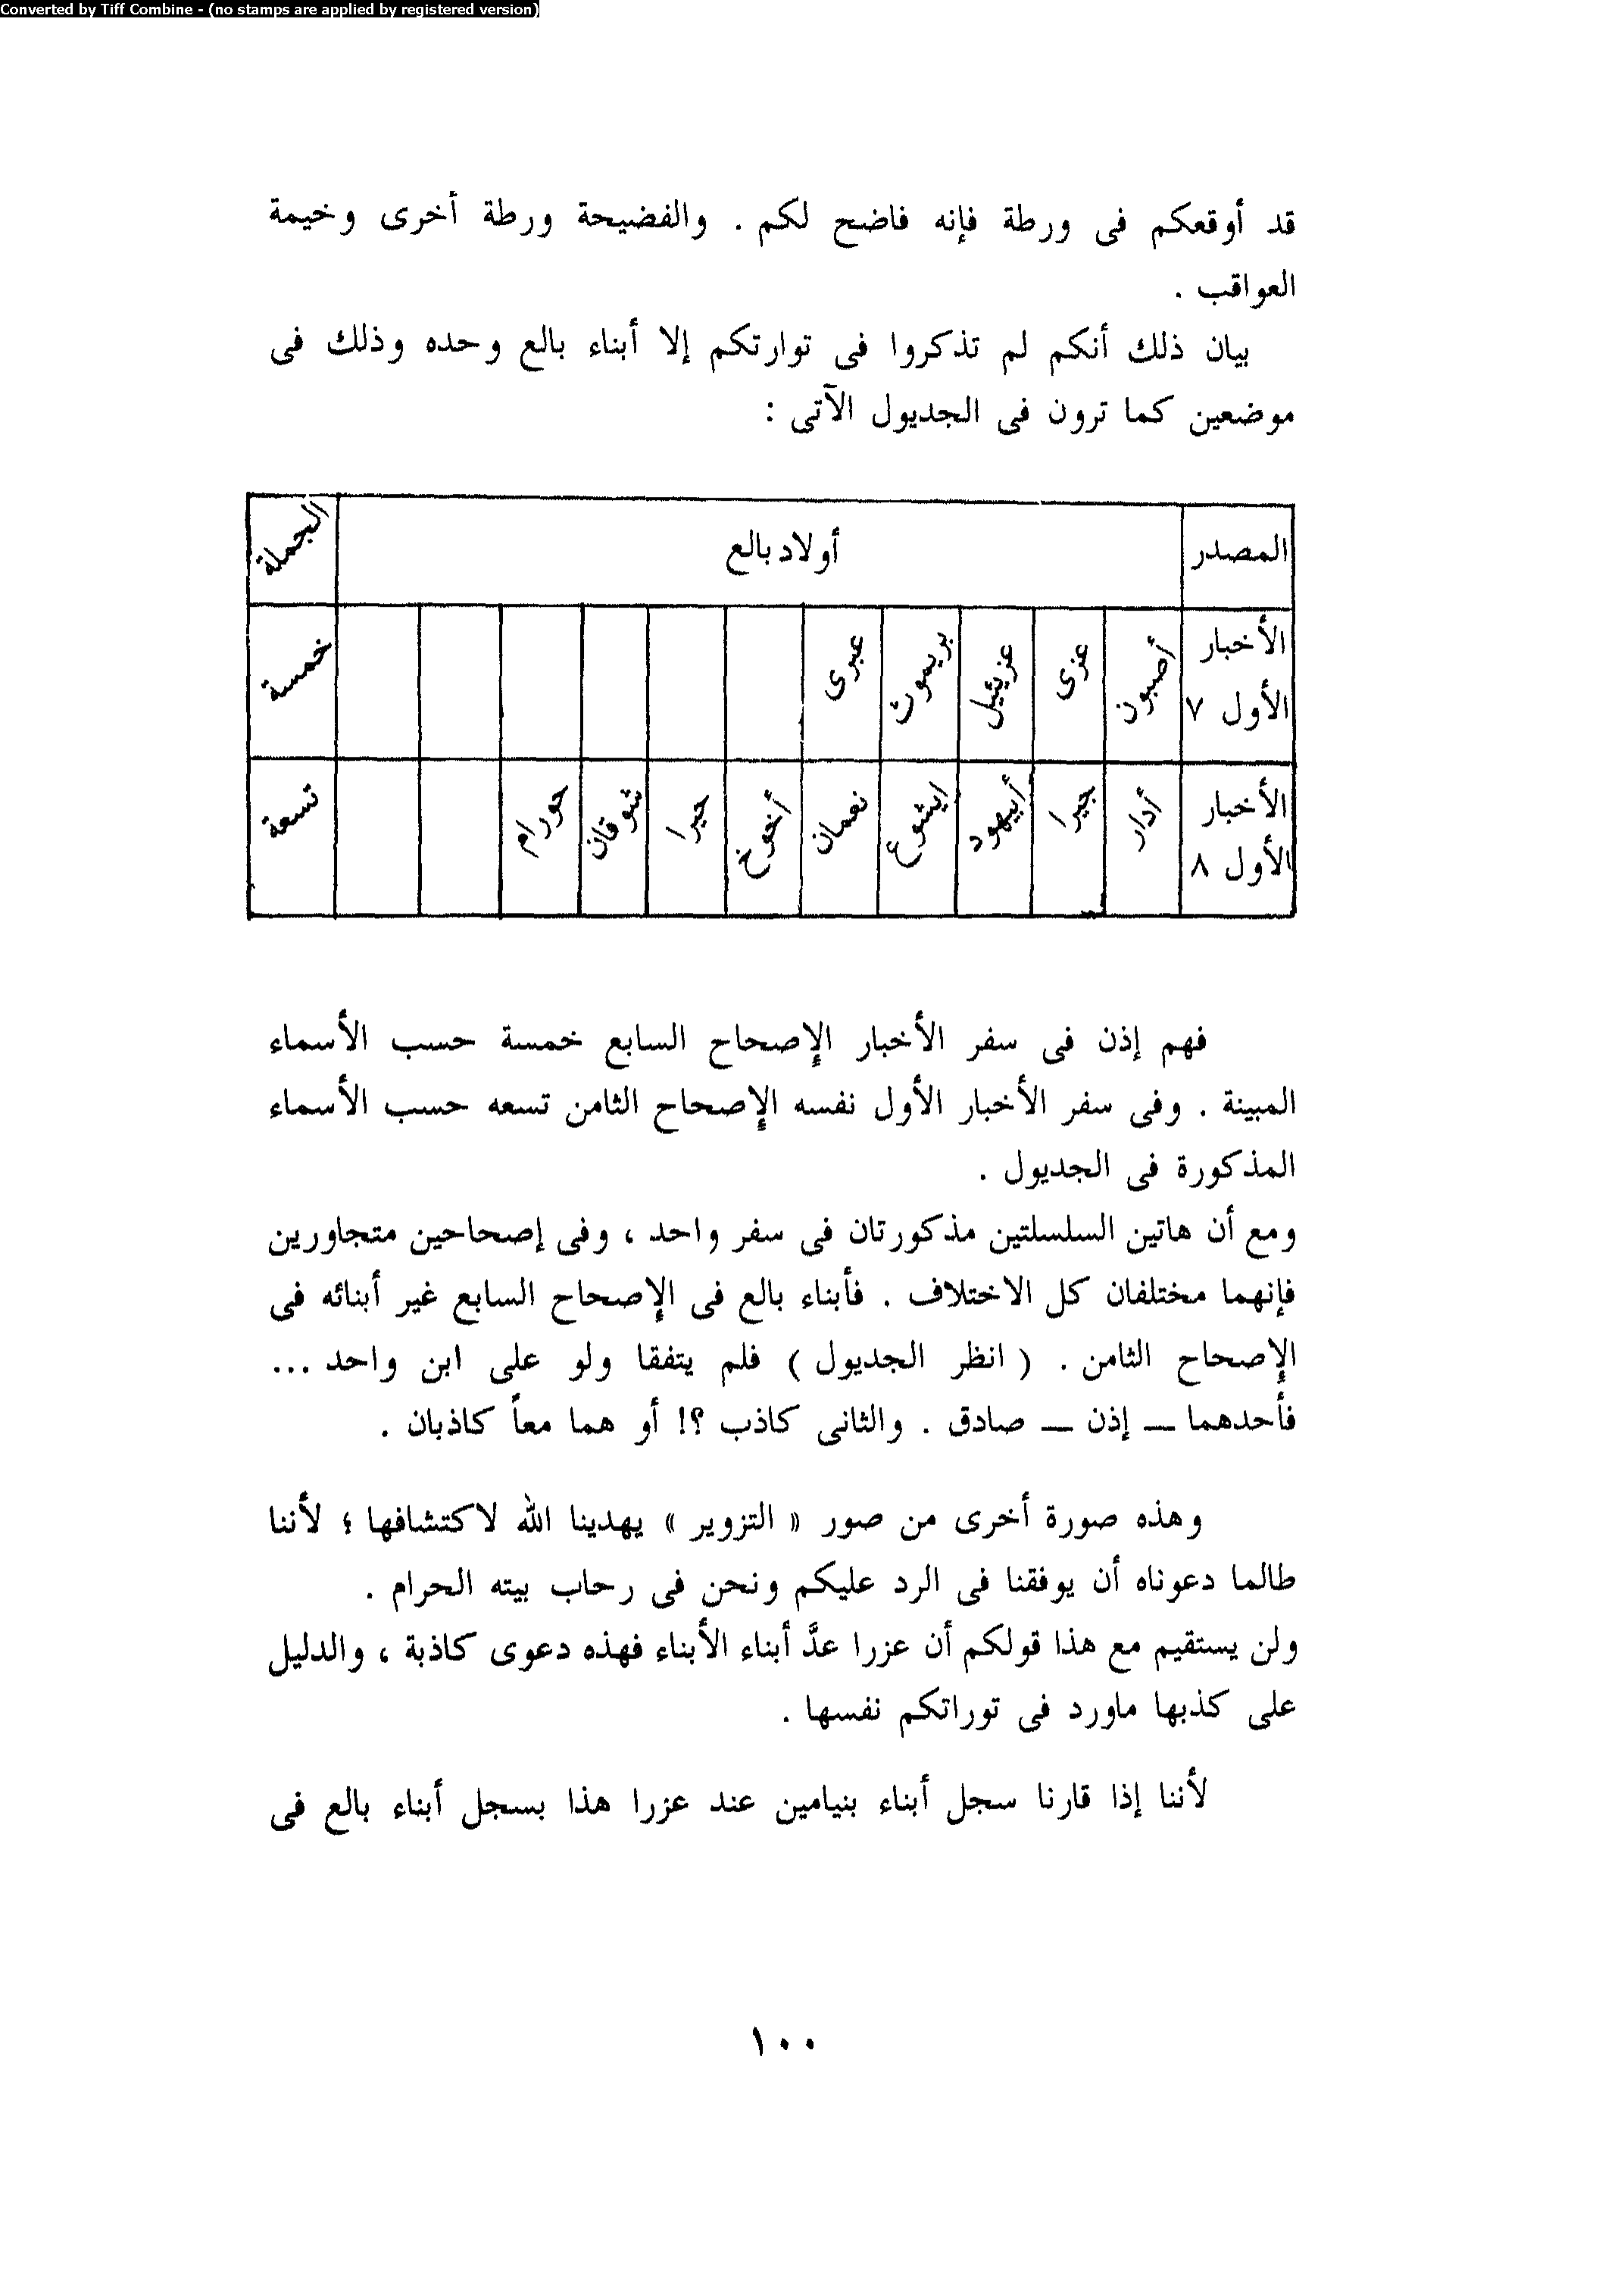 Converted by Tiff Combine - (no stamps are applied by registered version)
قد أوقعكم فى ورطة فإنه فاضح لكم . والفضيحة ورطة أخرى وخيمة
العواقب .
بيان ذلك أنكم لم تذكروا فى توارتكم إلا أبناء بالع وحده وذلك فى
موضعين كما ترون فى الجديول الآتى :
المصدر أولاد بالع الجملة
الأخبار الأول ٧ أصبون عزى عزيئيل بريموث عبرى خمسة
الأخبار الأول ٨ أدار جيرا أبيهود ايشوع نعمان أخوخ حيرا شوقان حورام تسعة
فهم إذن فى سفر الأخبار الإصحاح السابع خمسة حسب الأسماء
المبينة . وفى سفر الأخبار الأول نفسه الإصحاح الثامن تسعه حسب الأسماء
المذكورة فى الجديول .
ومع أن هاتين السلسلتين مذكورتان فى سفر واحد ، وفى إصحاحين متجاورين
فإنهما مختلفان كل الاختلاف . فأبناء بالع فى الإصحاح السابع غير أبنائه فى
الإصحاح الثامن . ( انظر الجديول ) فلم يتفقا ولو على ابن واحد ...
فأحدهما — إذن — صادق . والثانى كاذب ؟! أو هما معاً كاذبان .
وهذه صورة أخرى من صور « التزوير » يهدينا الله لاكتشافها ؛ لأننا
طالما دعوناه أن يوفقنا فى الرد عليكم ونحن فى رحاب بيته الحرام .
ولن يستقيم مع هذا قولكم أن عزرا عدَّ أبناء الأبناء فهذه دعوى كاذبة ، والدليل
على كذبها ماورد فى توراتكم نفسها .
لأننا إذا قارنا سجل أبناء بنيامين عند عزرا هذا بسجل أبناء بالع فى
١٠٠